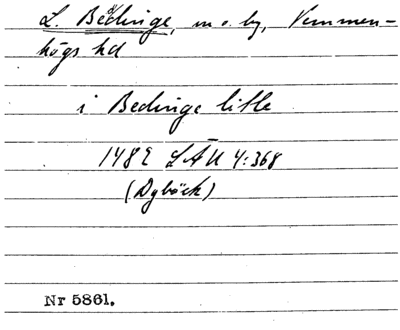 L. Beddinge, m o. by, Vemmen-
högs hd
i Bedinge litle
1482 LÄU 4:368
(Dybäck)
Nr 5861.